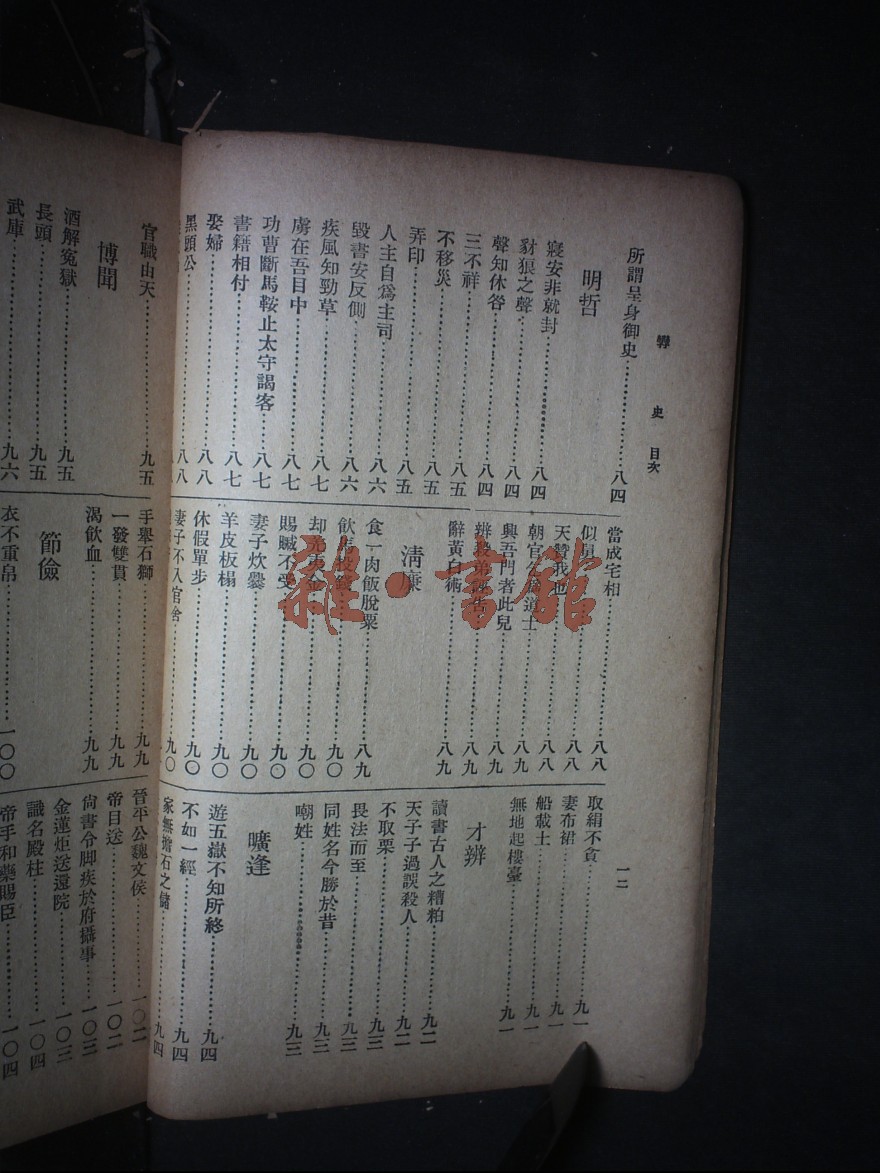 史 目次
一二
所謂呈身御史⋯⋯八四
明哲
寢安非就封⋯⋯八四
豺狼之聲⋯⋯八四
聲知休咎⋯⋯八四
三不祥⋯⋯八五
不移災⋯⋯八五
弄印⋯⋯八五
人主自爲主司⋯⋯八六
毀書安反側⋯⋯八六
疾風知勁草⋯⋯八七
虜在吾目中⋯⋯八七
功曹斷馬鞍止太守謁客⋯⋯八七
書籍相付⋯⋯八七
娶婦⋯⋯八八
黑頭公⋯⋯八八
當成宅相⋯⋯八八
天贊我也⋯⋯八八
興吾門者此兒⋯⋯八九
辭黃白術⋯⋯八九
清廉
食一肉飯脫粟⋯⋯八九
賜贓不受⋯⋯九〇
妻子炊爨⋯⋯九〇
羊皮板榻⋯⋯九〇
休假單步⋯⋯九〇
妻子不入官舍⋯⋯九〇
取絹不貪⋯⋯九一
妻布裙⋯⋯九一
船載土⋯⋯九一
無地起樓臺⋯⋯九一
才辨
讀書古人之糟粕⋯⋯九二
天子子過誤殺人⋯⋯九二
不取栗⋯⋯九三
畏法而至⋯⋯九三
同姓名今勝於昔⋯⋯九三
嘲姓⋯⋯九三
曠逢
遊五嶽不知所終⋯⋯九四
不如一經⋯⋯九四
家無擔石之儲⋯⋯九四
官職由天⋯⋯九五
博聞
酒解冤獄⋯⋯九五
長頭⋯⋯九五
武庫⋯⋯九六
手舉石獅⋯⋯九九
一發雙貫⋯⋯九九
渴飲血⋯⋯九九
節儉
衣不重帛⋯⋯一〇〇
晉平公魏文侯⋯⋯一〇二
帝目送⋯⋯一〇二
尙書令脚疾於府攝事⋯⋯一〇三
金蓮炬送還院⋯⋯一〇三
識名殿柱⋯⋯一〇四
帝手和藥賜臣⋯⋯一〇四
雜·書館